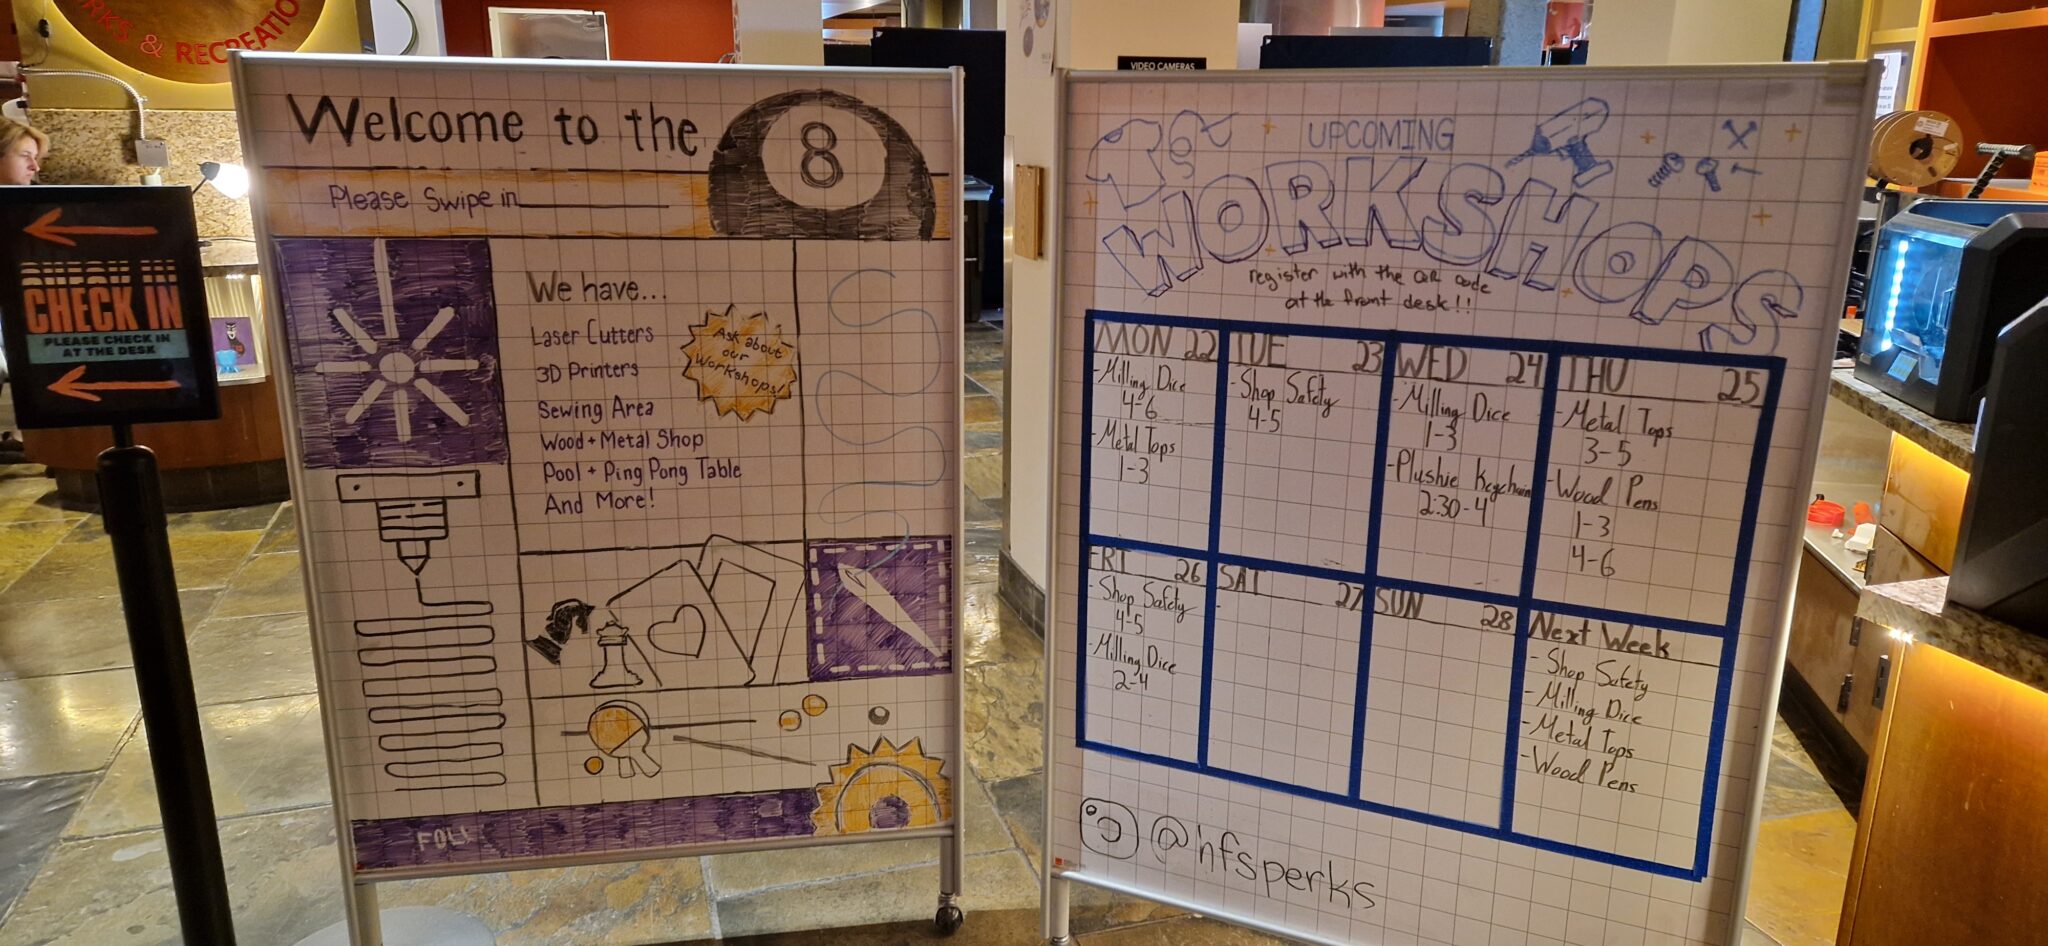 RKS & RECREATIO
CHECK IN
PLEASE CHECK IN
AT THE DESK
Welcome to the 8
Please Swipe in
We have...
Laser Cutters
3D Printers
Sewing Area
Wood + Metal Shop
Pool + Ping Pong Table
And More!
Ask about
our
Workshops!
FOLL
VIDEO CAMERAS
UPCOMING
WORKSHOPS
register with the QR code
at the front desk!!
MON 22
- Milling Dice
4-6
- Metal Tops
1-3
TUE 23
- Shop Safety
4-5
WED 24
- Milling Dice
1-3
- Plushie Keychain
2:30-4
THU 25
- Metal Tops
3-5
- Wood Pens
1-3
4-6
FRI 26
- Shop Safety
4-5
- Milling Dice
2-4
SAT 27
-
SUN 28
Next Week
- Shop Safety
- Milling Dice
- Metal Tops
- Wood Pens
@hfsperks